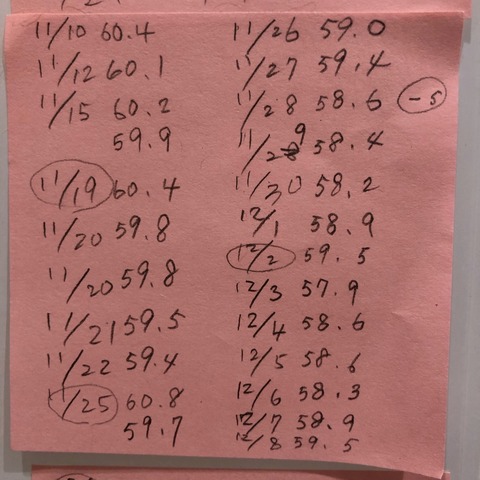 11/10 60.4
11/12 60.1
11/15 60.2
59.9
11/19 60.4
11/20 59.8
11/20 59.8
11/21 59.5
11/22 59.4
11/25 60.8
59.7
11/26 59.0
11/27 59.4
11/28 58.6 -5
11/29 58.4
11/30 58.2
12/1 58.9
12/2 59.5
12/3 57.9
12/4 58.6
12/5 58.6
12/6 58.3
12/7 58.9
12/8 59.5